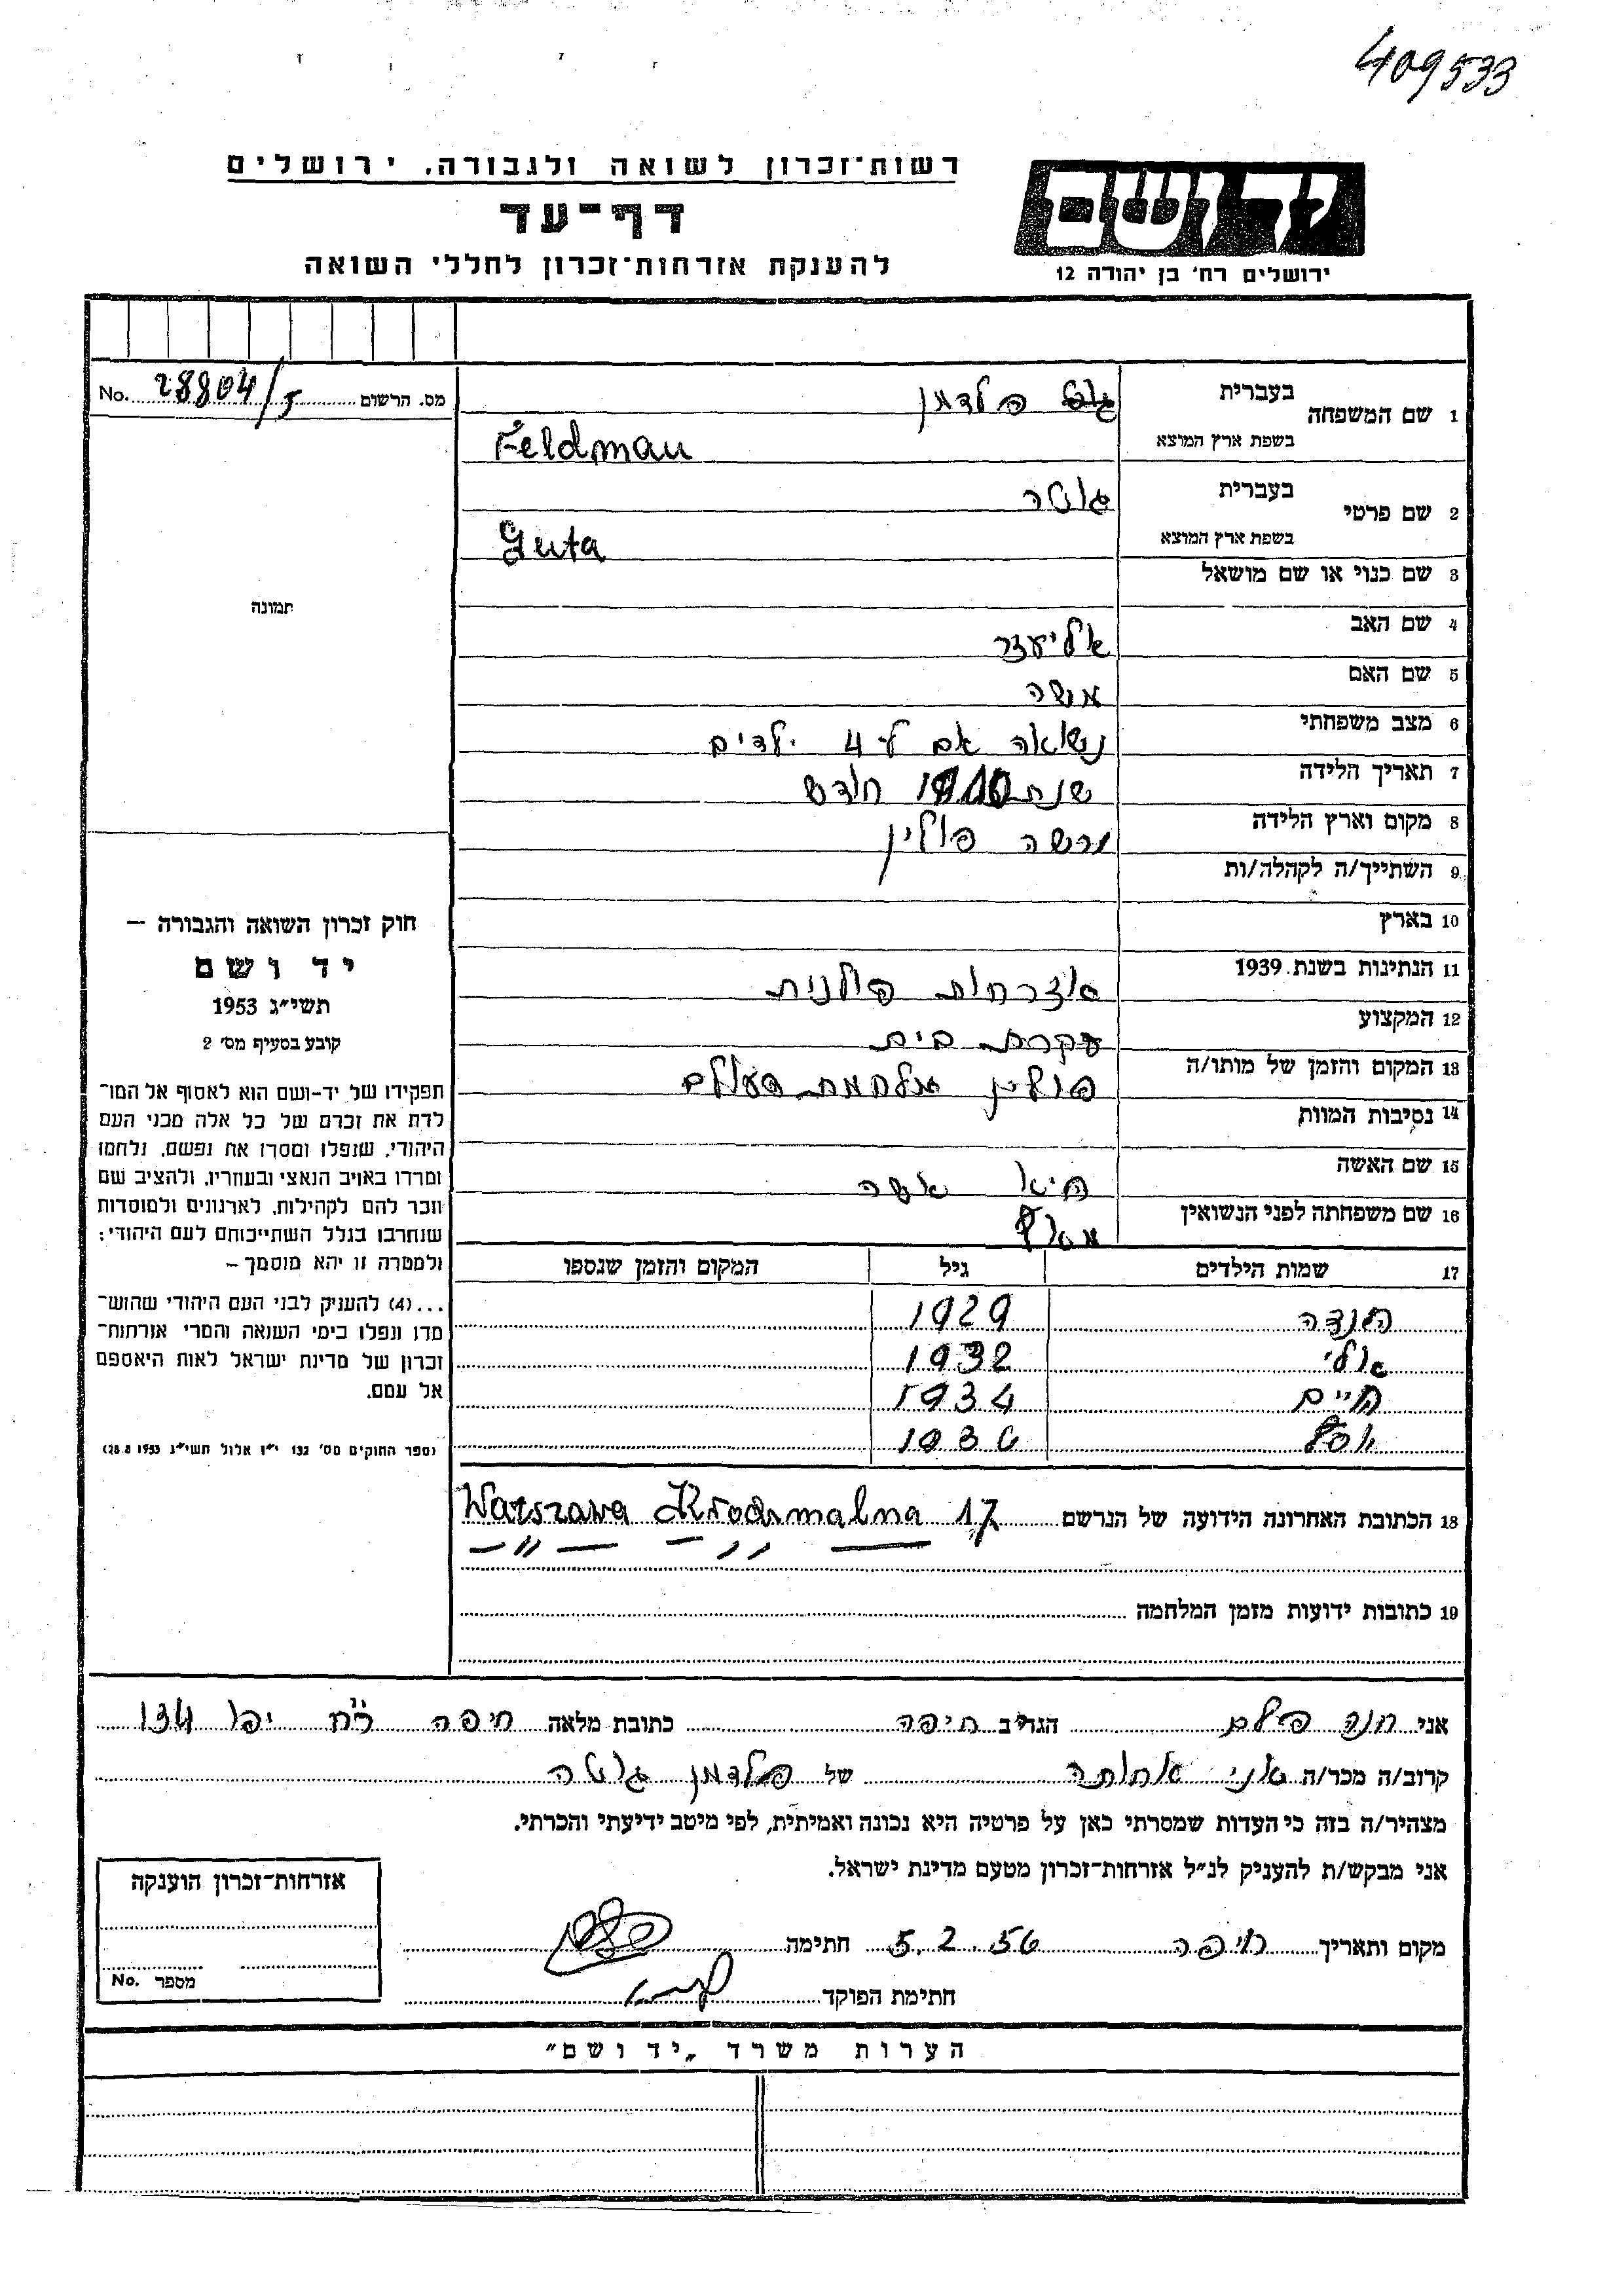 409533
רשות־זכרון לשואה ולגבורה, ירושלים
דף־עד
להענקת אזרחות־זכרון לחללי השואה
יד ושם
ירושלים רח׳ בן יהודה 12
מס. הרשום 28804/5 No.
1 שם המשפחה בעברית פלדמן
בשפת ארץ המוצא Feldman
2 שם פרטי בעברית גוטה
בשפת ארץ המוצא Guta
3 שם כנוי או שם מושאל
4 שם האב אליעזר
5 שם האם
6 מצב משפחתי נשואה אם ל-4 ילדים
7 תאריך הלידה שנת 1910 חודש
8 מקום וארץ הלידה ורשה פולין
9 השתייך/ה לקהלה/ות
10 בארץ
11 הנתינות בשנת 1939 אזרחות פולנית
12 המקצוע עקרת בית
13 המקום והזמן של מותו/ה פולין מלחמת העולם
14 נסיבות המוות
15 שם האשה היא אשה
16 שם משפחתה לפני הנשואין
17 שמות הילדים גיל המקום והזמן שנספו
1929
1932
חיים 1934
יוסף 1936
18 הכתובת האחרונה הידועה של הנרשם Warszawa Krochmalna 17
19 כתובות ידועות מזמן המלחמה
תמונה
חוק זכרון השואה והגבורה –
יד ושם
תשי״ג 1953
קובע בסעיף מס׳ 2
תפקידו של יד-ושם הוא לאסוף אל המו־
לדת את זכרם של כל אלה מבני העם
היהודי, שנפלו ומסרו את נפשם, נלחמו
ומרדו באויב הנאצי ובעוזריו, ולהציב שם
וזכר להם לקהילות, לארגונים ולמוסדות
שנחרבו בגלל השתייכותם לעם היהודי;
ולמטרה זו יהא מוסמך –
...(4) להעניק לבני העם היהודי שהוש־
מדו ונפלו בימי השואה והמרי אזרחות־
זכרון של מדינת ישראל לאות היאספם
אל עמם.
(ספר החוקים מס׳ 132 י״ז אלול תשי״ג 28.8.1953)
אני חנה פלם הגר/ה ב חיפה כתובת מלאה חיפה רח יפו 134
קרוב/ה מכר/ה אני אחותה של פלדמן גוטה
מצהיר/ה בזה כי העדות שמסרתי כאן על פרטיה היא נכונה ואמיתית, לפי מיטב ידיעתי והכרתי.
אני מבקש/ת להעניק לנ״ל אזרחות־זכרון מטעם מדינת ישראל.
מקום ותאריך חיפה 5.2.56 חתימה
חתימת הפוקד
אזרחות־זכרון הוענקה
מספר No.
הערות משרד „יד ושם״